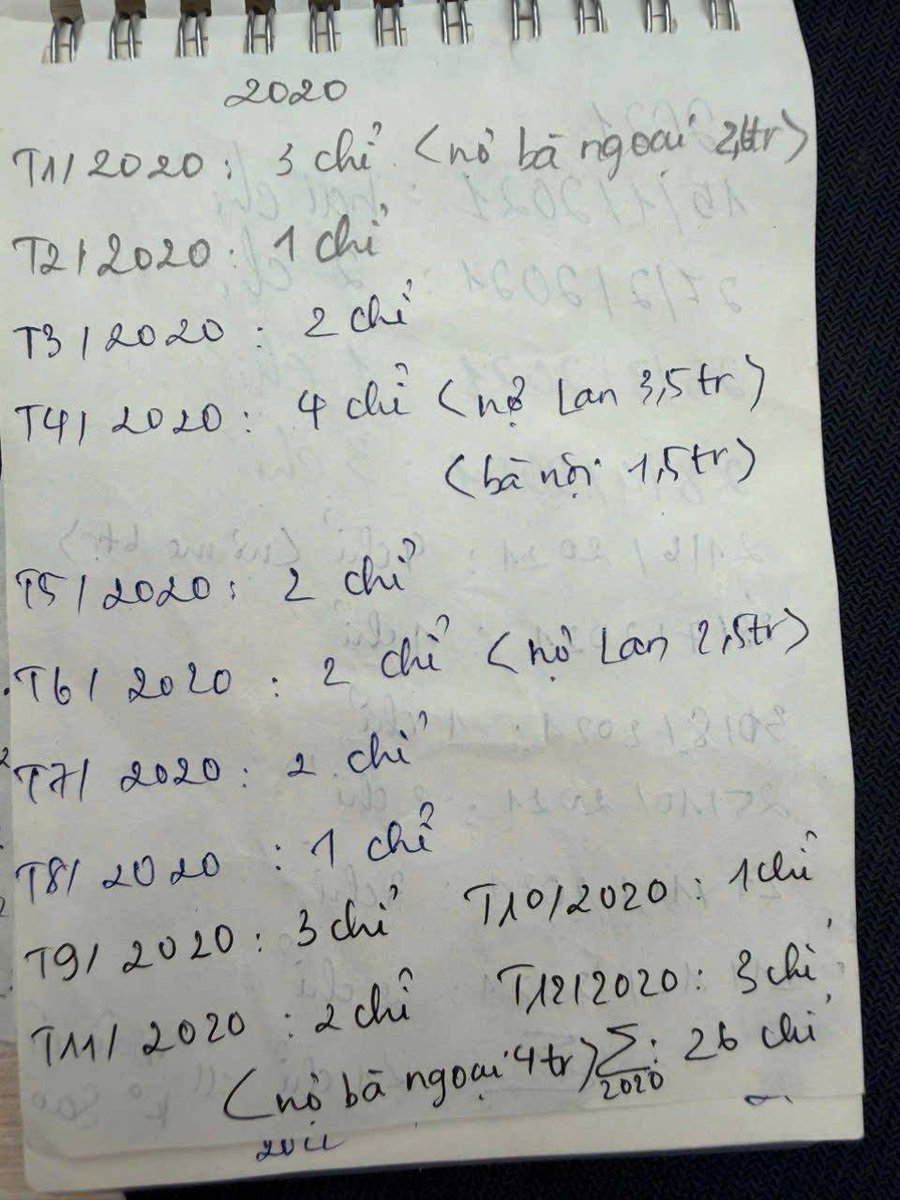 2020
T1/2020: 3 chỉ (nợ bà ngoại 2,6tr)
T2/2020: 1 chỉ
T3/2020: 2 chỉ
T4/2020: 4 chỉ (nợ Lan 3,5tr)
(bà nội 1,5tr)
T5/2020: 2 chỉ
T6/2020: 2 chỉ (nợ Lan 2,5tr)
T7/2020: 2 chỉ
T8/2020: 1 chỉ
T9/2020: 3 chỉ T10/2020: 1 chỉ
T11/2020: 2 chỉ T12/2020: 3 chỉ
(nợ bà ngoại 4tr) Σ 2020: 26 chỉ